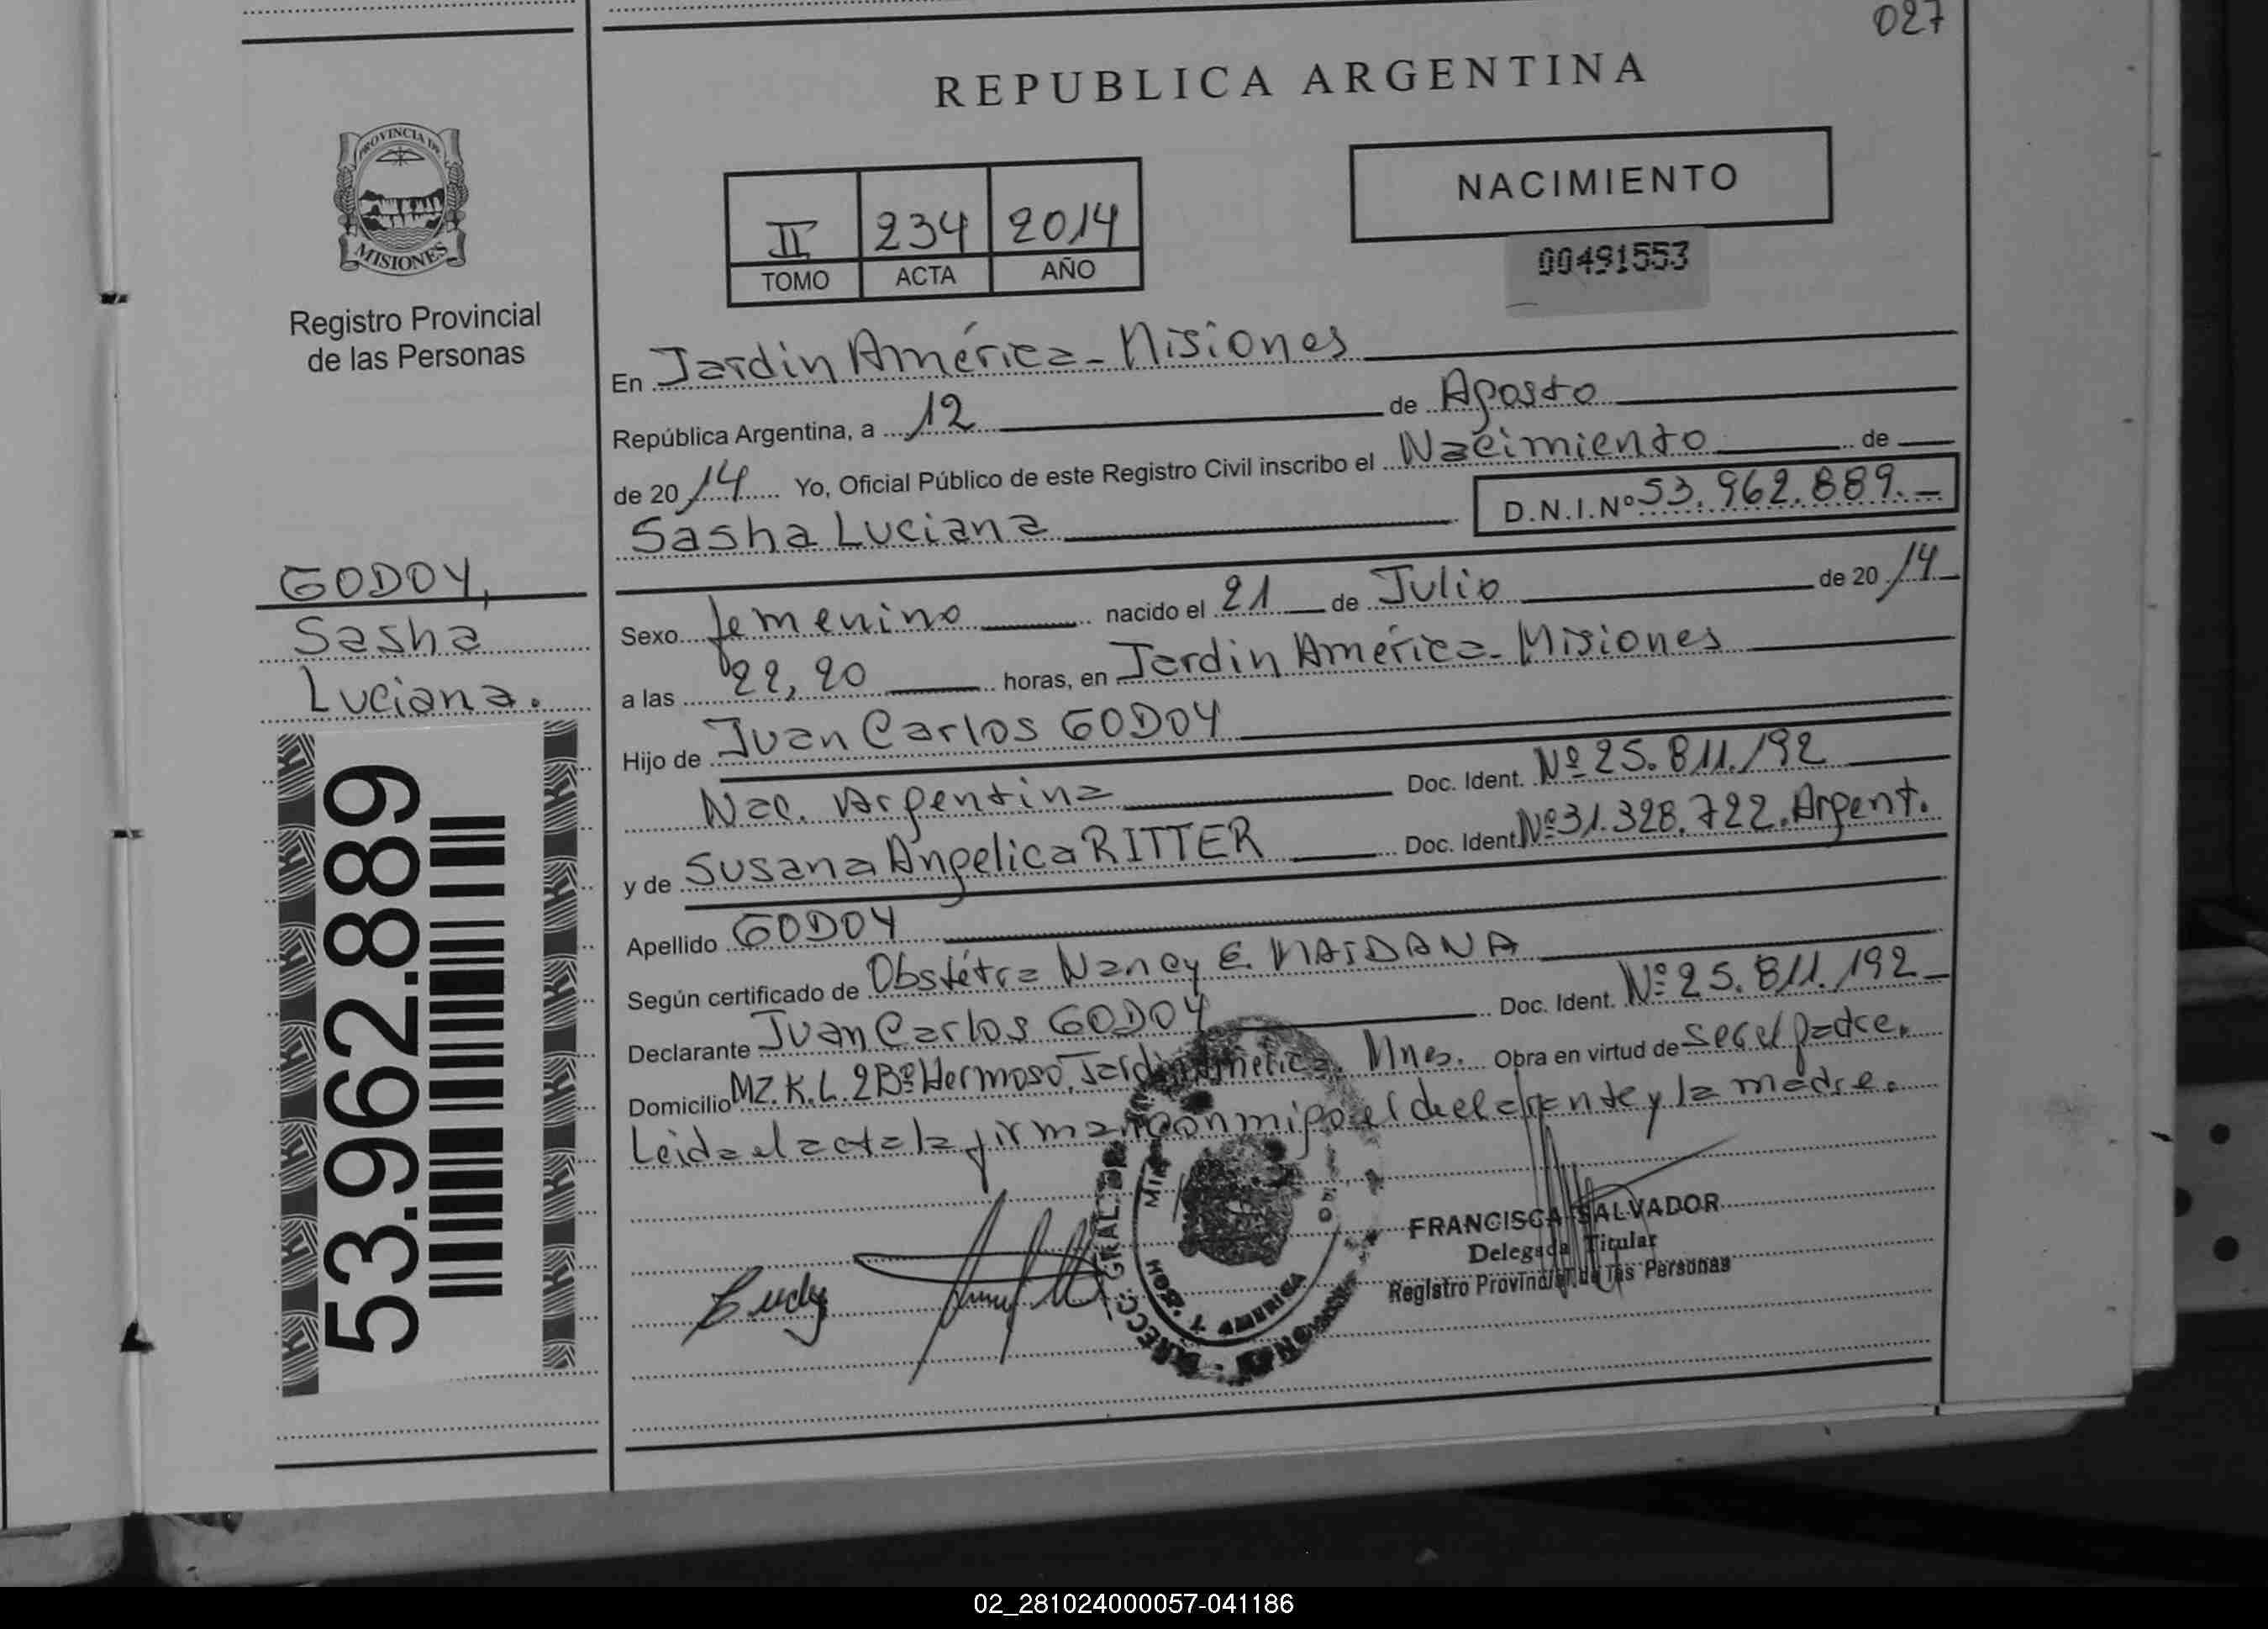 027
REPUBLICA ARGENTINA
PROVINCIA DE
MISIONES
Registro Provincial
de las Personas
II 234 2014
TOMO ACTA AÑO
NACIMIENTO
00491553
En Jardin América - Misiones
República Argentina, a 12 de Agosto
de 2014 Yo, Oficial Público de este Registro Civil inscribo el Nacimiento de
Sasha Luciana D.N.I.Nº 53.962.889.-
GODOY,
Sasha
Luciana.
53.962.889
Sexo femenino nacido el 21 de Julio de 2014
a las 22,20 horas, en Jardin América - Misiones
Hijo de Juan Carlos GODOY
Nac. Argentina Doc. Ident. Nº 25.811.192
y de Susana Angelica RITTER Doc. Ident. Nº 31.328.722. Argent.
Apellido GODOY
Según certificado de Obstétra Nancy E. MAIDANA
Declarante Juan Carlos GODOY Doc. Ident. Nº 25.811.192
Domicilio MZ. K. L. 2 Bº Hermoso, Jardin América. Mnes. Obra en virtud de ser el padre.
Leida el acta la firman con migo el declarante y la madre.
FRANCISCA SALVADOR
Delegada Titular
Registro Provincial de las Personas
02_281024000057-041186